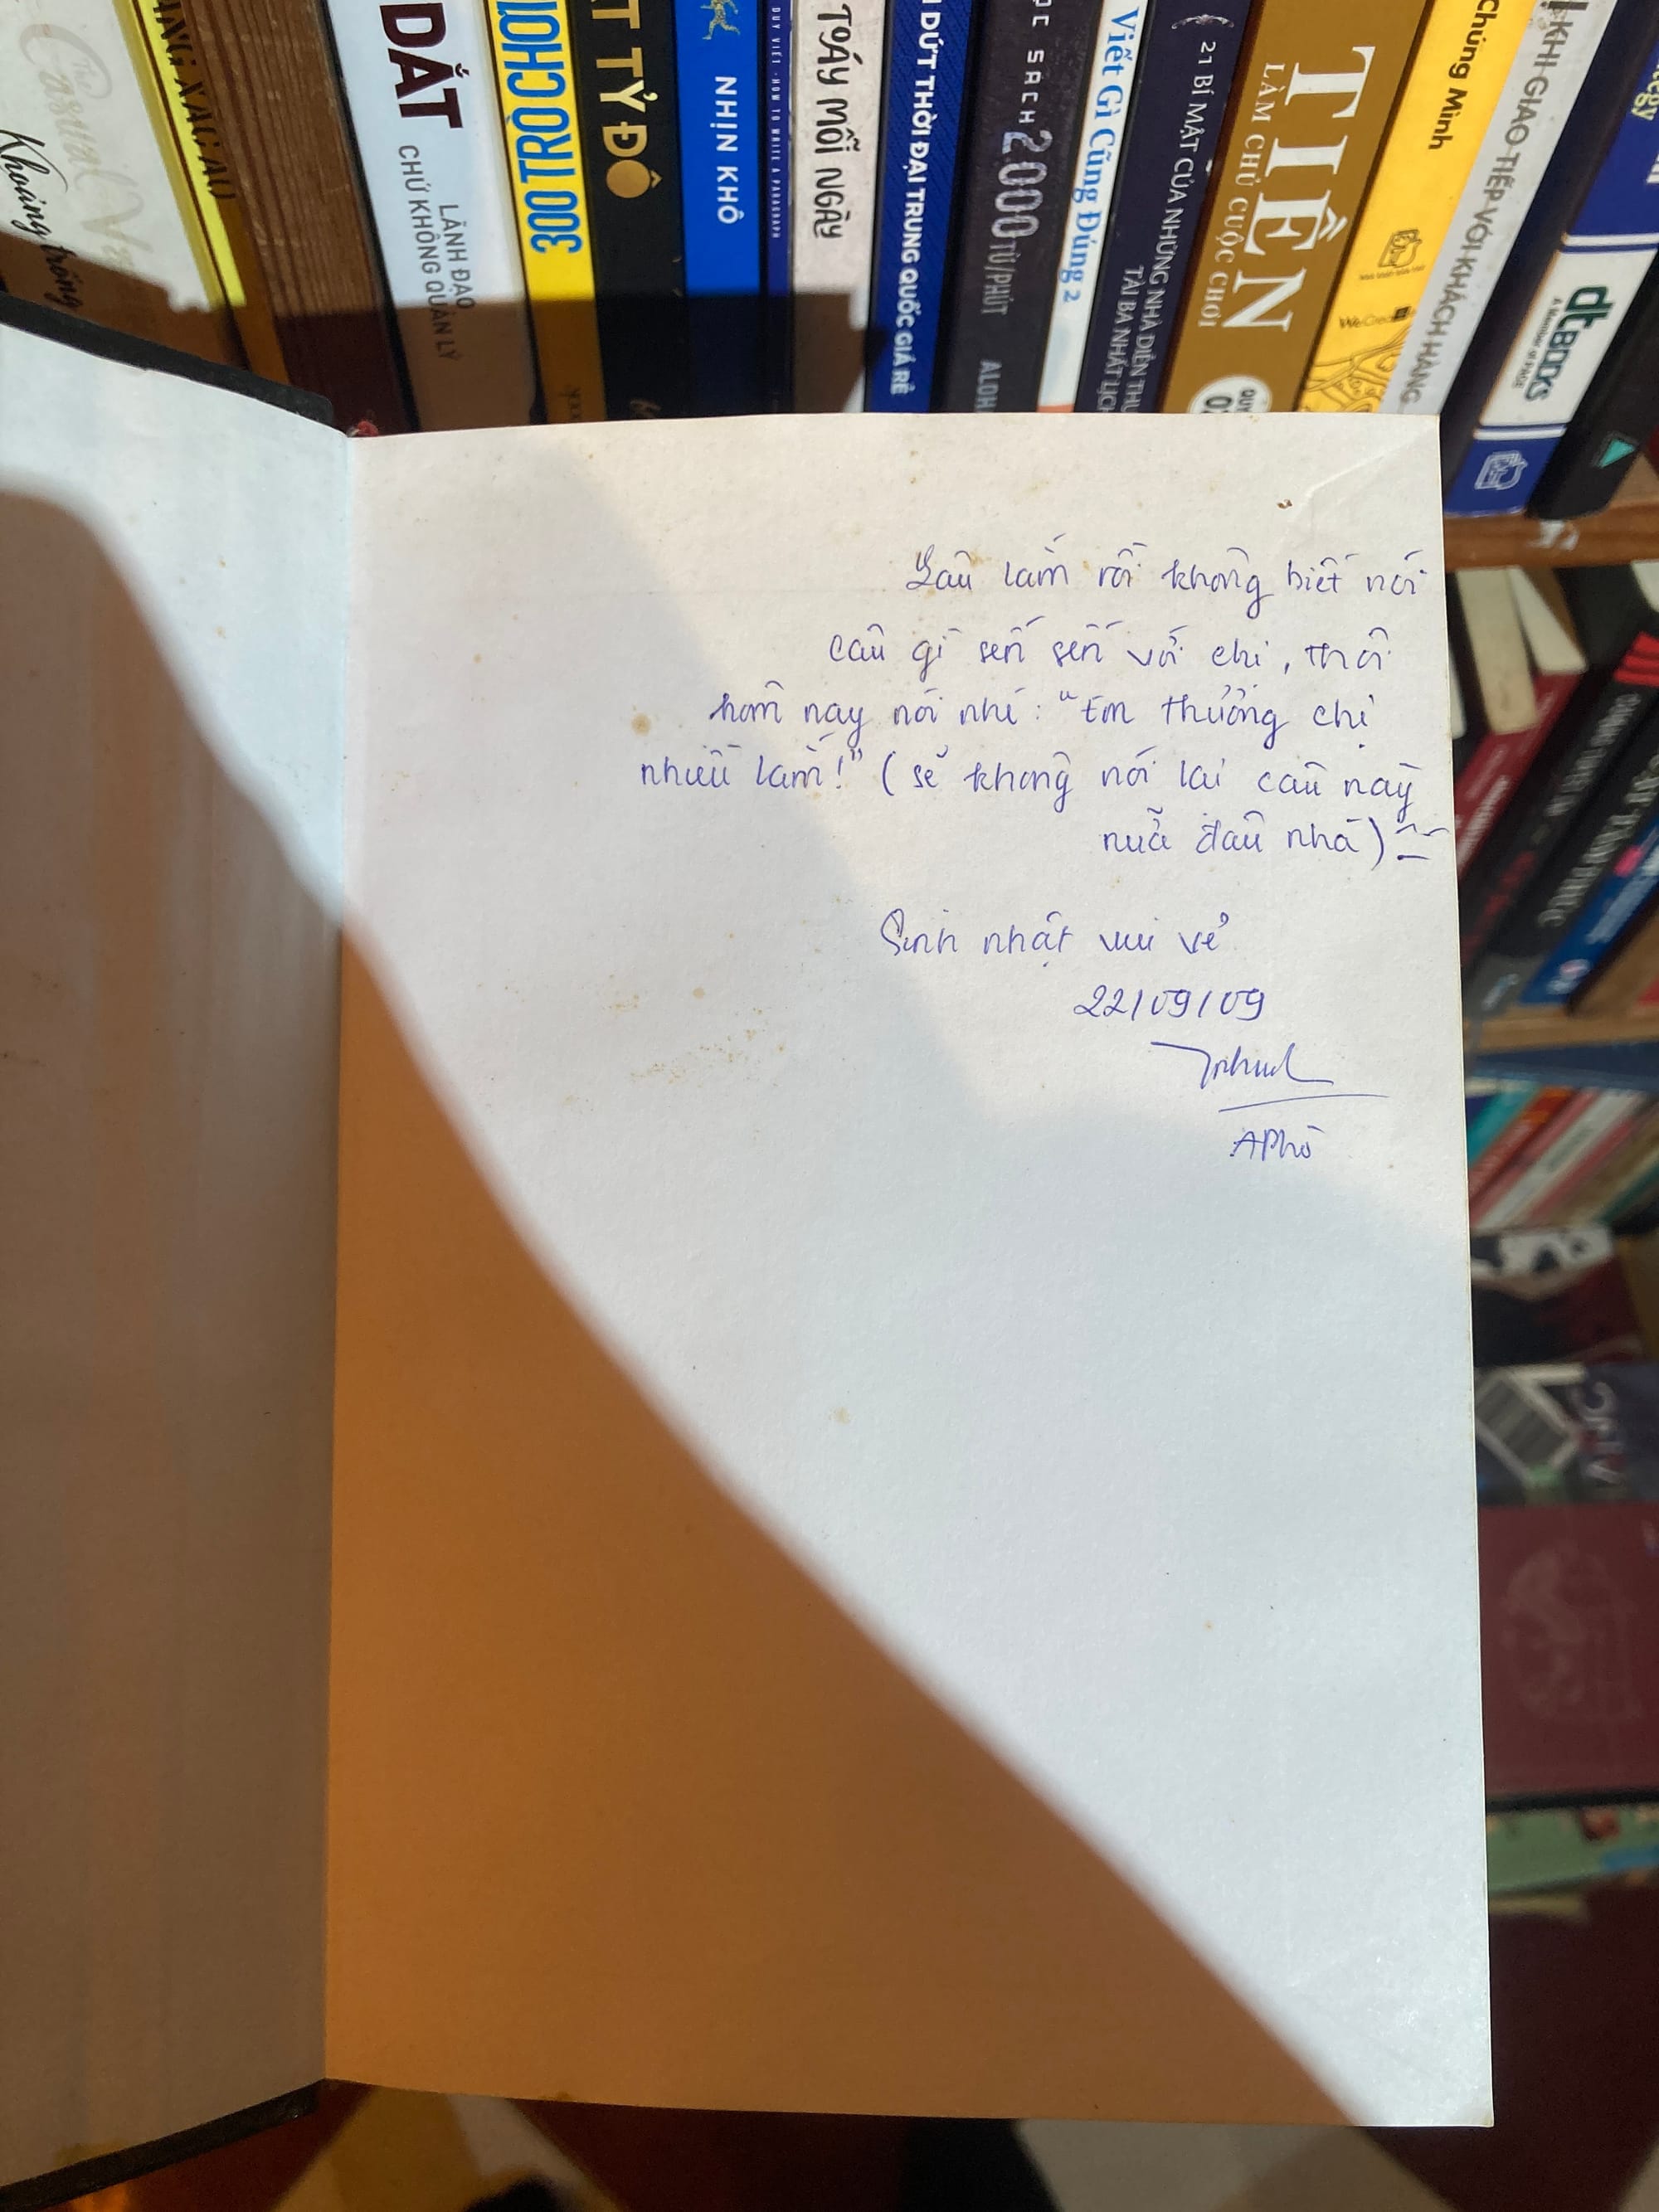 Casual
Khoảng trống
DẮT
LÃNH ĐẠO
CHỨ KHÔNG QUẢN LÝ
300 TRÒ CHƠI
TỶ ĐÔ
NHỊN KHÔ
DUY VIẾT - HOW TO WRITE A PARAGRAPH
MỖI NGÀY
DỨT THỜI ĐẠI TRUNG QUỐC GIÁ RẺ
SÁCH 2000 TỪ/PHÚT
ALOH
Viết Gì Cũng Đúng 2
21 BÍ MẬT CỦA NHỮNG NHÀ DIỄN THU
TÀI BA NHẤT LỊCH
TIỀN
LÀM CHỦ CUỘC CHƠI
Chứng Minh
WeCreate
KHI GIAO TIẾP VỚI KHÁCH HÀNG
dtBOOKS
A Member of PACE
Lâu lắm rồi không biết nói
câu gì sến sến với chị, thôi
hôm nay nói nhé: "Em thương chị
nhiều lắm!" (sẽ không nói lại câu này
nữa đâu nhá)
Sinh nhật vui vẻ
22/09/09
APhò